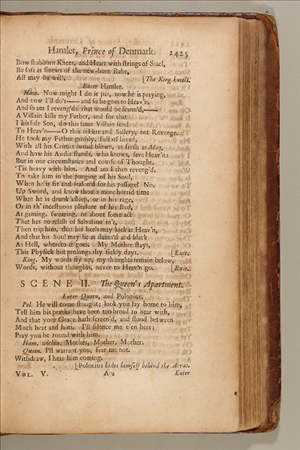 Hamlet, Prince of Denmark. 2425
Bow stubborn Knees, and Heart with strings of Steel,
Be soft as sinews of the new-born Babe,
All may be well. [The King kneels.
Enter Hamlet.
Ham. Now might I do it pat, now he is praying,
And now I'll do't—— and so he goes to Heav'n,
And so am I reveng'd: that would be scann'd,——
A Villain kills my Father, and for that
I his sole Son, do this same Villain send
To Heav'n—— O this is Hire and Sallery, not Revenge.
He took my Father grossly, full of bread,
With all his Crimes broad blown, as fresh as May,
And how his Audit stands, who knows, save Heav'n:
But in our circumstance and course of Thought,
'Tis heavy with him. And am I then reveng'd,
To take him in the purging of his Soul,
When he is fit and season'd for his passage? No.
Up Sword, and know thou a more horrid time
When he is drunk asleep, or in his rage,
Or in th' incestuous pleasure of his Bed,
At gaming, swearing, or about some act
That has no relish of Salvation in't,
Then trip him, that his heels may kick at Heav'n,
And that his Soul may be as damn'd and black
As Hell, whereto it goes. My Mother stays,
This Physick but prolongs thy sickly days. [Exit.
King. My words fly up, my thoughts remain below,
Words, without thoughts, never to Heav'n go. [Exit.
SCENE II. The Queen's Apartment.
Enter Queen, and Polonius.
Pol. He will come straight; look you lay home to him,
Tell him his pranks have been too broad to bear with,
And that your Grace hath screen'd, and stood between
Much heat and him. I'll silence me e'en here:
Pray you be round with him.
Ham. within. Mother, Mother, Mother.
Queen. I'll warrant you, fear me not.
Withdraw, I hear him coming.
[Polonius hides himself behind the Arras.
VOL. V. A 2 Enter